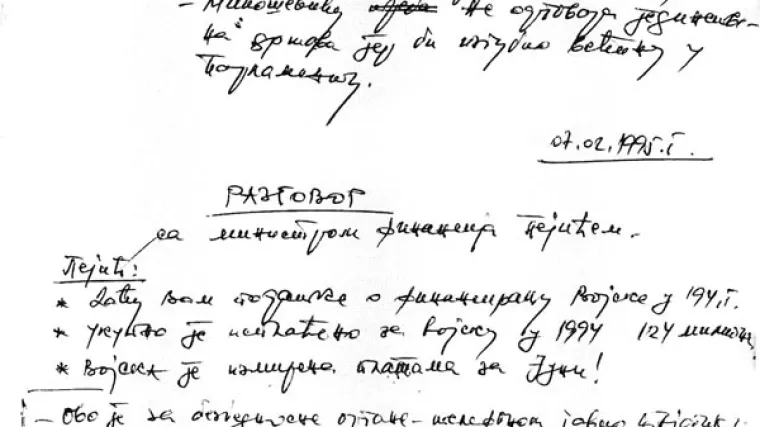 - Милошевићу не одговара јединстве-
на држава јер би изгубио већину у
Парламенту.
07.02.1995.г.
РАЗГОВОР
са министром финансија Пејићем.
Пејић:
* Даћу Вам податке о финансирању Војске у 194.г.
* Укупно је исплаћено за војску у 1994 124 милиона
* Војска је измирена платама за Јуни!
- Ово је за безбедносне органе - телефоном